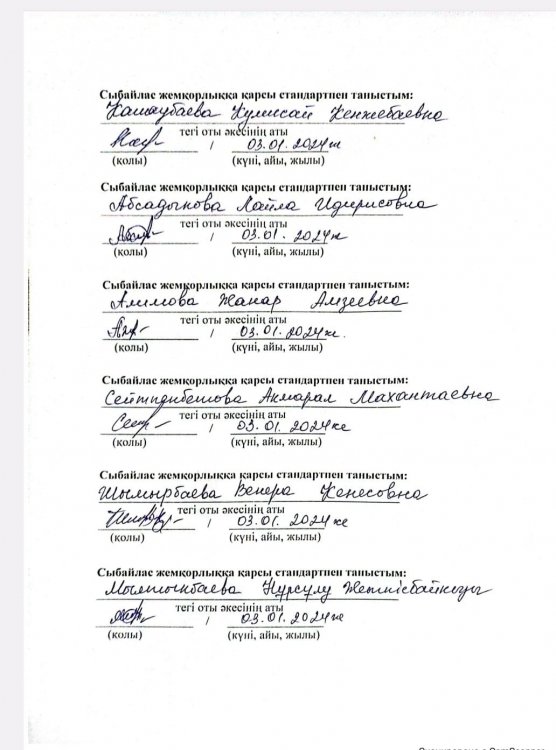 Сыбайлас жемқорлыққа қарсы стандартпен таныстым:
Кашаубаева Кулиссай Кенжебаевна
тегі оты әкесінің аты
/ 03.01.2024ж
(қолы) (күні, айы, жылы)
Сыбайлас жемқорлыққа қарсы стандартпен таныстым:
Абсадыкова Лайла Идирисовна
тегі оты әкесінің аты
/ 03.01.2024ж
(қолы) (күні, айы, жылы)
Сыбайлас жемқорлыққа қарсы стандартпен таныстым:
Алимова Жанар Амзеевна
тегі оты әкесінің аты
/ 03.01.2024ж.
(қолы) (күні, айы, жылы)
Сыбайлас жемқорлыққа қарсы стандартпен таныстым:
Акмарал Махантаевна
тегі оты әкесінің аты
/ 03.01.2024ж
(қолы) (күні, айы, жылы)
Сыбайлас жемқорлыққа қарсы стандартпен таныстым:
Шымырбаева Венера Кенесовна
тегі оты әкесінің аты
/ 03.01.2024ж
(қолы) (күні, айы, жылы)
Сыбайлас жемқорлыққа қарсы стандартпен таныстым:
Нурсулу
тегі оты әкесінің аты
/ 03.01.2024ж
(қолы) (күні, айы, жылы)